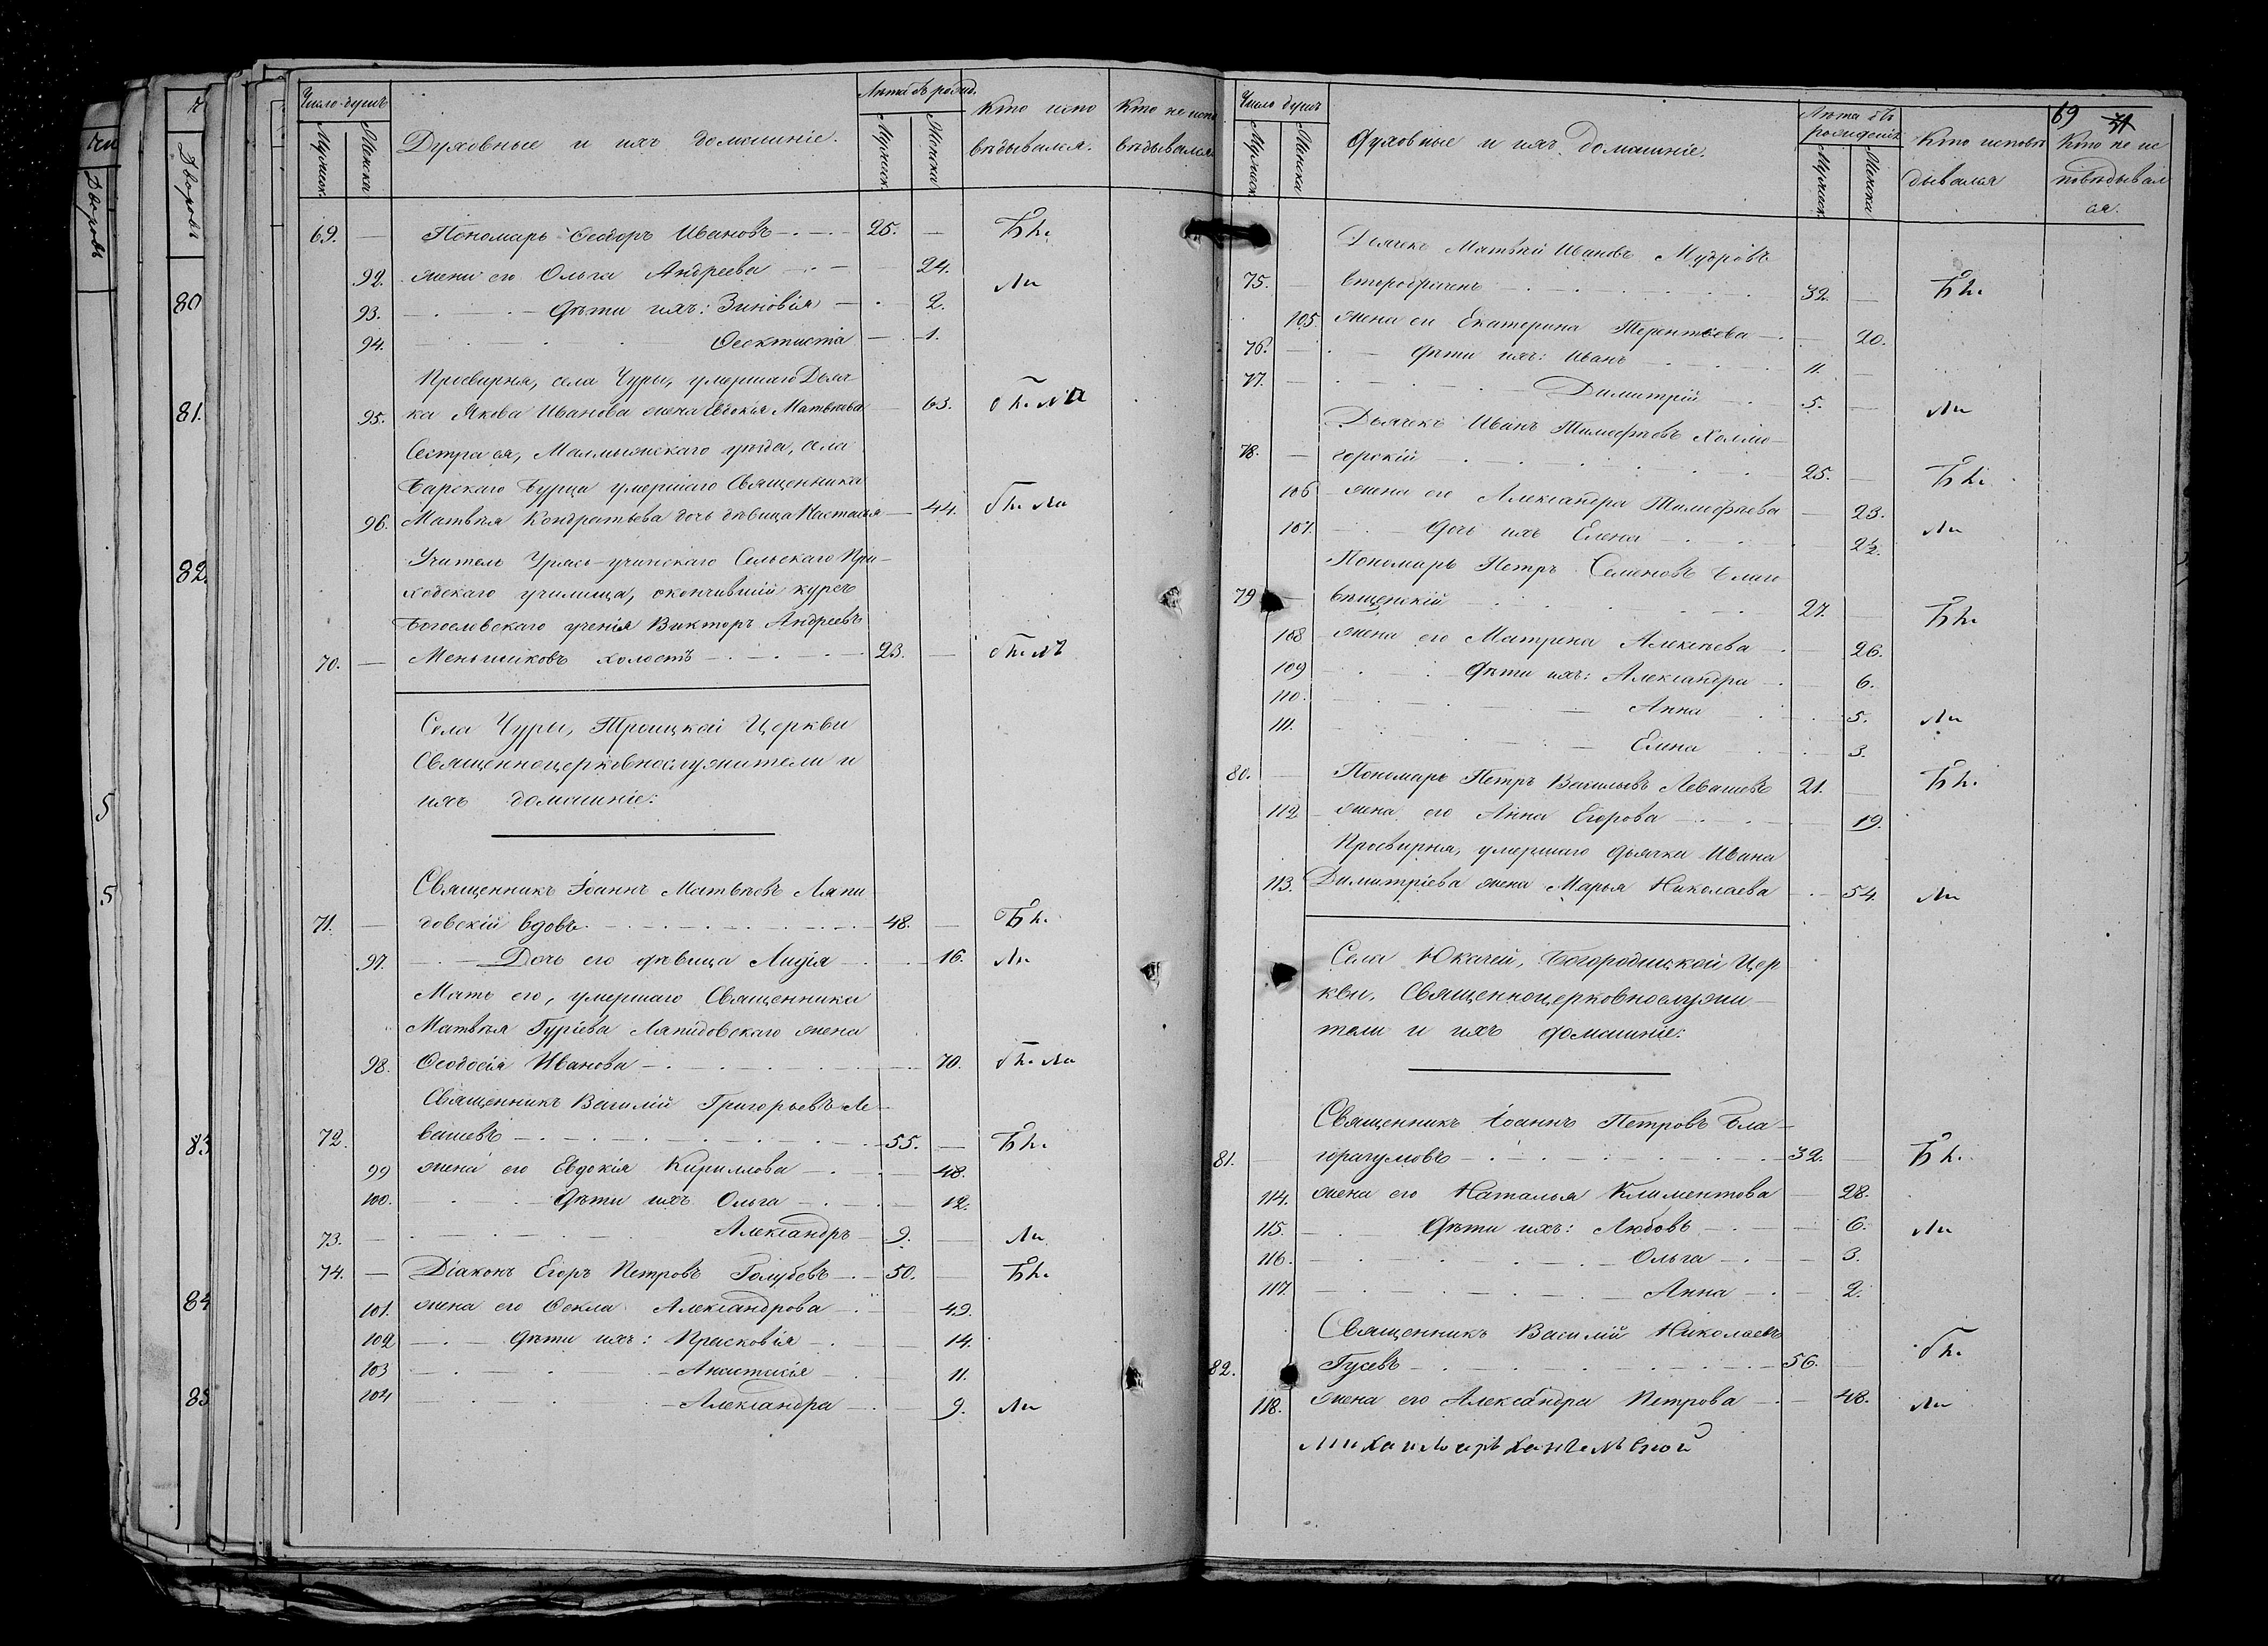 80
81.
82.
5
5
83
84
85
Число душъ
Мужеск.
Женска
Духовные и ихъ домашніе.
Лѣта отъ рожд.
Мужеск.
Женска
Кто испо
вѣдывался.
Кто не испо
вѣдывался
69. — Пономарь Ѳеодоръ Ивановъ — 25. —
92. жена его Ольга Андреева — 24.
93. — Дѣти ихъ: Зиновія — 2.
94. Ѳеоктиста — 1.
Просвирня, села Чуры, умершаго Дьяч-
95. ка Якова Иванова жена Евдокія Матвѣева — 63.
Сестра ея, Малмыжскаго уѣзда, села
Барскаго Бурца умершаго Священника
96. Матвѣя Кондратьева дочь дѣвица Настасья — 44.
Учитель Урясь-учинскаго Сельскаго При-
ходскаго училища, окончившій курсъ
Богословскаго ученія Викторъ Андреевъ
70. — Меньшиковъ холостъ — 23. —
Села Чуры, Троицкой Церкви
Священноцерковнослужители и
ихъ домашніе:
Священникъ Іоаннъ Матвѣевъ Ляпи
71. — довскій вдовъ. — 48. —
97. — Дочь его дѣвица Лидія — 16.
Мать его, умершаго Священника
Матвѣя Гуріева Ляпидовскаго жена
98. Ѳеодосія Иванова — 70.
Священникъ Василій Григорьевъ Ле-
72. вашевъ — 55. —
99 жена его Евдокія Кириллова — 48.
100. — Дѣти ихъ Ольга — 12.
73. — Александръ — 9. —
74. — Діаконъ Егоръ Петровъ Голубевъ — 50. —
101. жена его Ѳекла Александрова — 49.
102 — Дѣти ихъ: Прасковія — 14.
103 — Анастасія — 11.
104 — Александра — 9.
Число душъ
Мужеск.
Женска
Духовные и ихъ домашніе.
Лѣта отъ
рожденія
Мужеск.
Женска
Кто исповѣ
дывался
69
Кто не ис
повѣдывал
ся.
Дьячекъ Матвѣй Ивановъ Мудровъ
75. — второбраченъ — 32. —
105. жена его Екатерина Терентьева — 20.
76. — Дѣти ихъ: Иванъ — 11. —
77. — Димитрій — 5. —
Дьячекъ Иванъ Тимофѣевъ Холмо-
78. — горскій — 25. —
106 жена его Александра Тимофѣева — 23.
107. — Дочь ихъ Елена — 2½.
Пономарь Петръ Семеновъ Благо
79 — вѣщенскій — 27. —
108 жена его Матрена Алексѣева — 26.
109 — Дѣти ихъ: Александра — 6.
110. — Анна — 5.
111. — Елена — 3.
80. — Пономарь Петръ Васильевъ Левашевъ 21. —
112 жена его Анна Егорова — 19.
Просвирня, умершаго дьячка Ивана
113. Димитріева жена Марья Николаева — 54.
Села Юкачей, Богородицкой Цер
кви, Священноцерковнослужи-
тели и ихъ домашніе:
Священникъ Іоаннъ Петровъ Бла-
81. горазумовъ — 32. —
114. жена его Наталья Климентова — 28.
115. — Дѣти ихъ: Любовь — 6.
116. — Ольга — 3.
117. — Анна — 2.
Священникъ Василій Николаевъ
82. Гусевъ — 56. —
118. жена его Александра Петрова — 48.
Михаилоархангельской